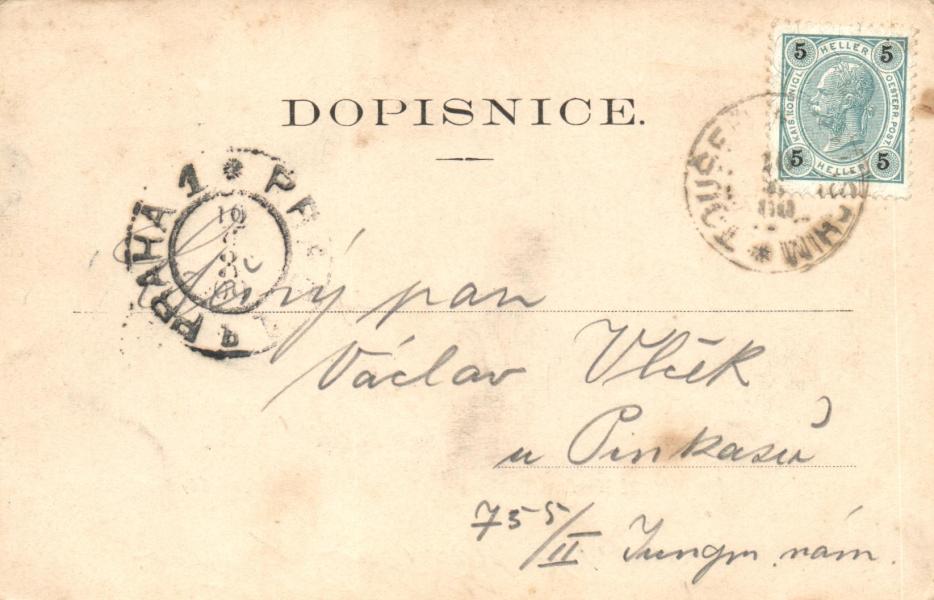 DOPISNICE.
5 HELLER 5
KAIS. KOENIGL. OESTERR. POST.
5 HELLER 5
PRAHA 1
Slovutný pan
Václav Vlček
u Pinkasů
755/II Jungm. nám.